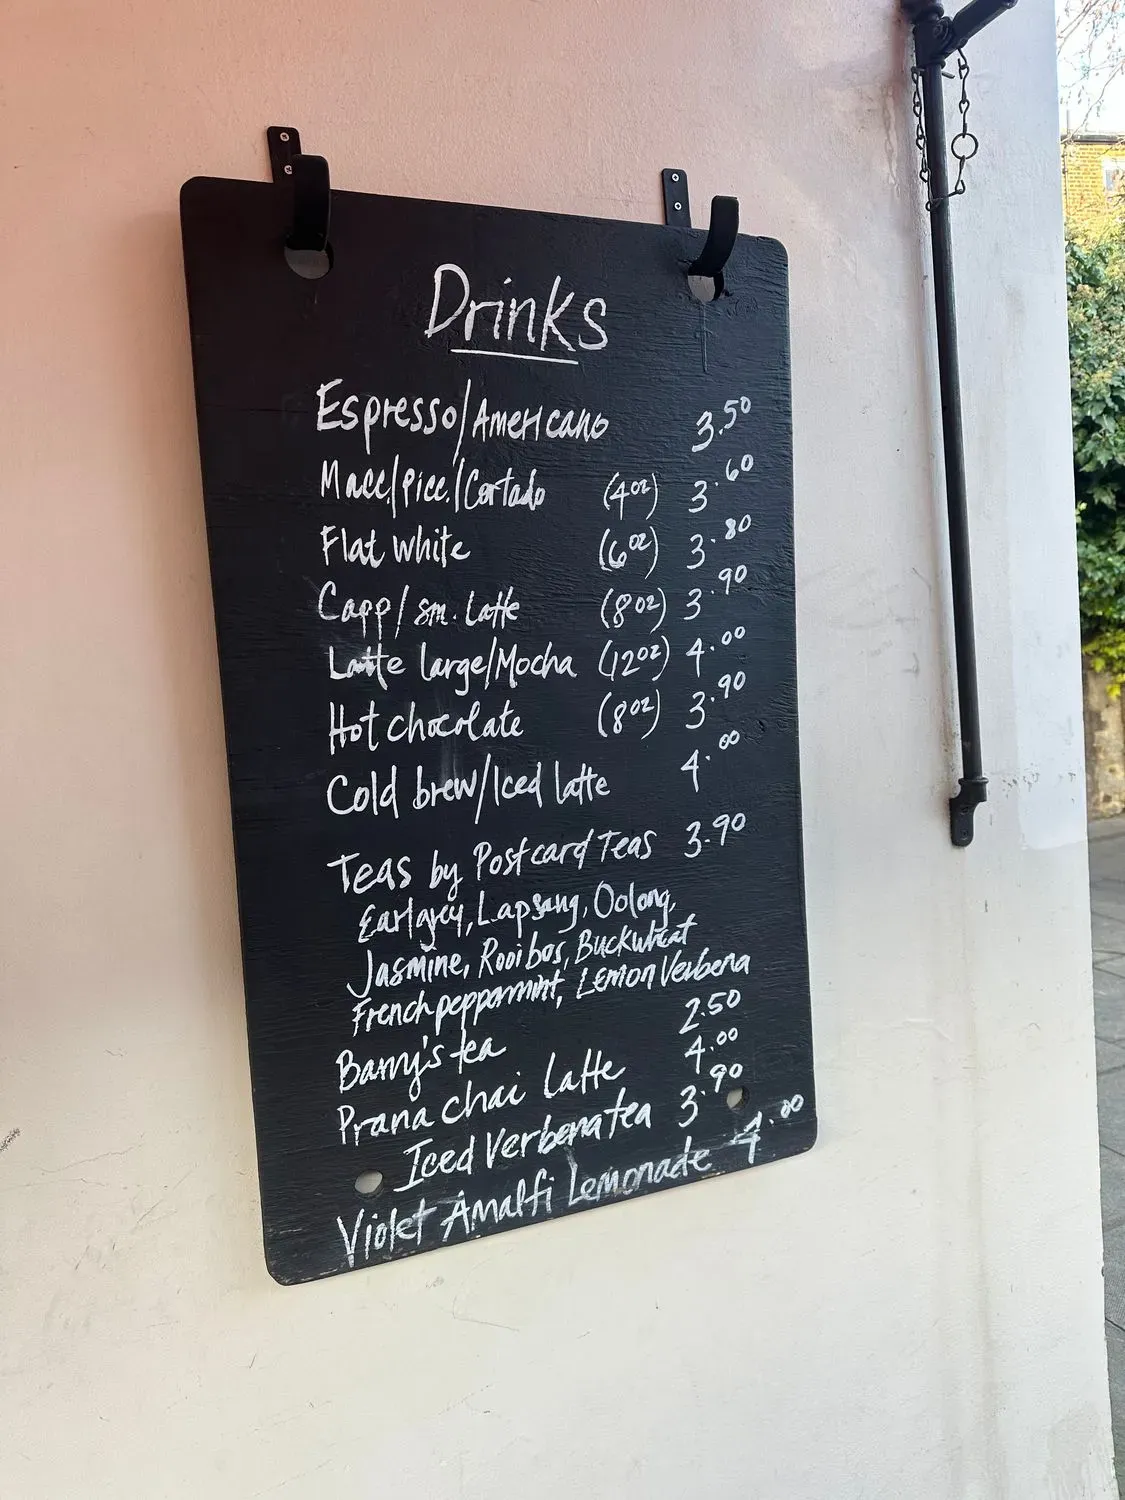 Drinks
Espresso/Americano 3.50
Macc/Picc./Cortado (4oz) 3.60
Flat white (6oz) 3.80
Capp/sm. Latte (8oz) 3.90
Latte large/Mocha (12oz) 4.00
Hot chocolate (8oz) 3.90
Cold brew/Iced latte 4.00
Teas by Postcard Teas 3.90
Earlgrey, Lapsang, Oolong,
Jasmine, Rooibos, Buckwheat
French peppermint, Lemon Verbena
Barry's tea 2.50
Prana chai latte 4.00
Iced Verbena tea 3.90
Violet Amalfi Lemonade 4.00